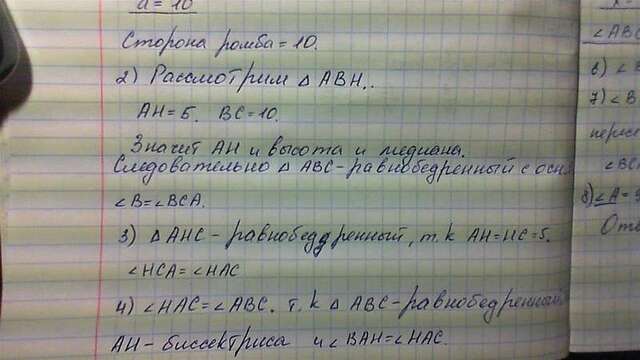 a = 10
Сторона ромба = 10.
2) Рассмотрим △ ABH.
AH = 5. BC = 10.
Значит AH и высота и медиана.
Следовательно △ ABC - равнобедренный с осн
∠B = ∠BCA.
3) △ AHC - равнобеддренный, т.к AH = HC = 5.
∠HCA = ∠HAC
4) ∠HAC = ∠ABC. т.к △ ABC - равнобедренный
AH - биссектриса и ∠BAH = ∠HAC.
∠ABC
6) ∠B
7) ∠B
перес
∠BC
8) ∠A =
Отв